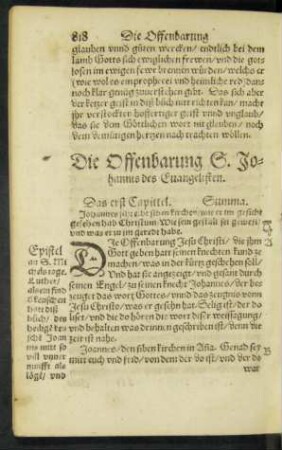 818 Die Offenbarung
glauben vnnd güten wercken/ endtlich bei dem
lamb Gotts sich ewiglichen frewen/ vnd die gott
losen im ewigen fewr brennen würden/ welchs er
wie wol es emprophecei vnd heimliche red/ dan
noch klar genüg zuuerstehen gibt. Das sich aber
der ketzer geist in diß büch nit richten kan/ macht
jhr verstockter hoffertiger geist vnnd vnglaub/
das sie dem Göttlichen wort nit glauben/ noch
dem demütigen hertzen nach trachten wöllen.
Die Offenbarung S. Jo-
hannis des Euangelisten.
Das erst Capittel. Summa.
Johannes schreibt siben kirchen, wie er im gesicht
gesehen hab Christum. Wie sein gestalt sei gewest
vnd was er zu im geredt habe.
DIe Offenbarung Jesu Christi/ die jhm
Gott geben hat seinen knechten kundt zu
machen/ was in der kürtz geschehen soll/
Vnd hat sie angezeigt/ vnd gesant durch
seinen Engel/ zu seinem knecht Johannes/ der be-
zeuget das wort Gottes/ vnnd das zeugnis vonn
Jesu Christo/ was er gesehn hat. Selig ist/ der do
liset/ vnd die do hören die wort diser weissagung/
vnd behalten was drinnen geschriben ist/ denn die
zeit ist nahe.
Joannes/ den siben kirchen in Asia. Genad sey
mit euch vnd frid/ von dem der do ist/ vnd der do
war
Epistel
an S. Mi
chels tage.
also im
disch
lich/ den
heilige
scht Joan
nis mit so
vill
nunfft als
lögt/ vnd